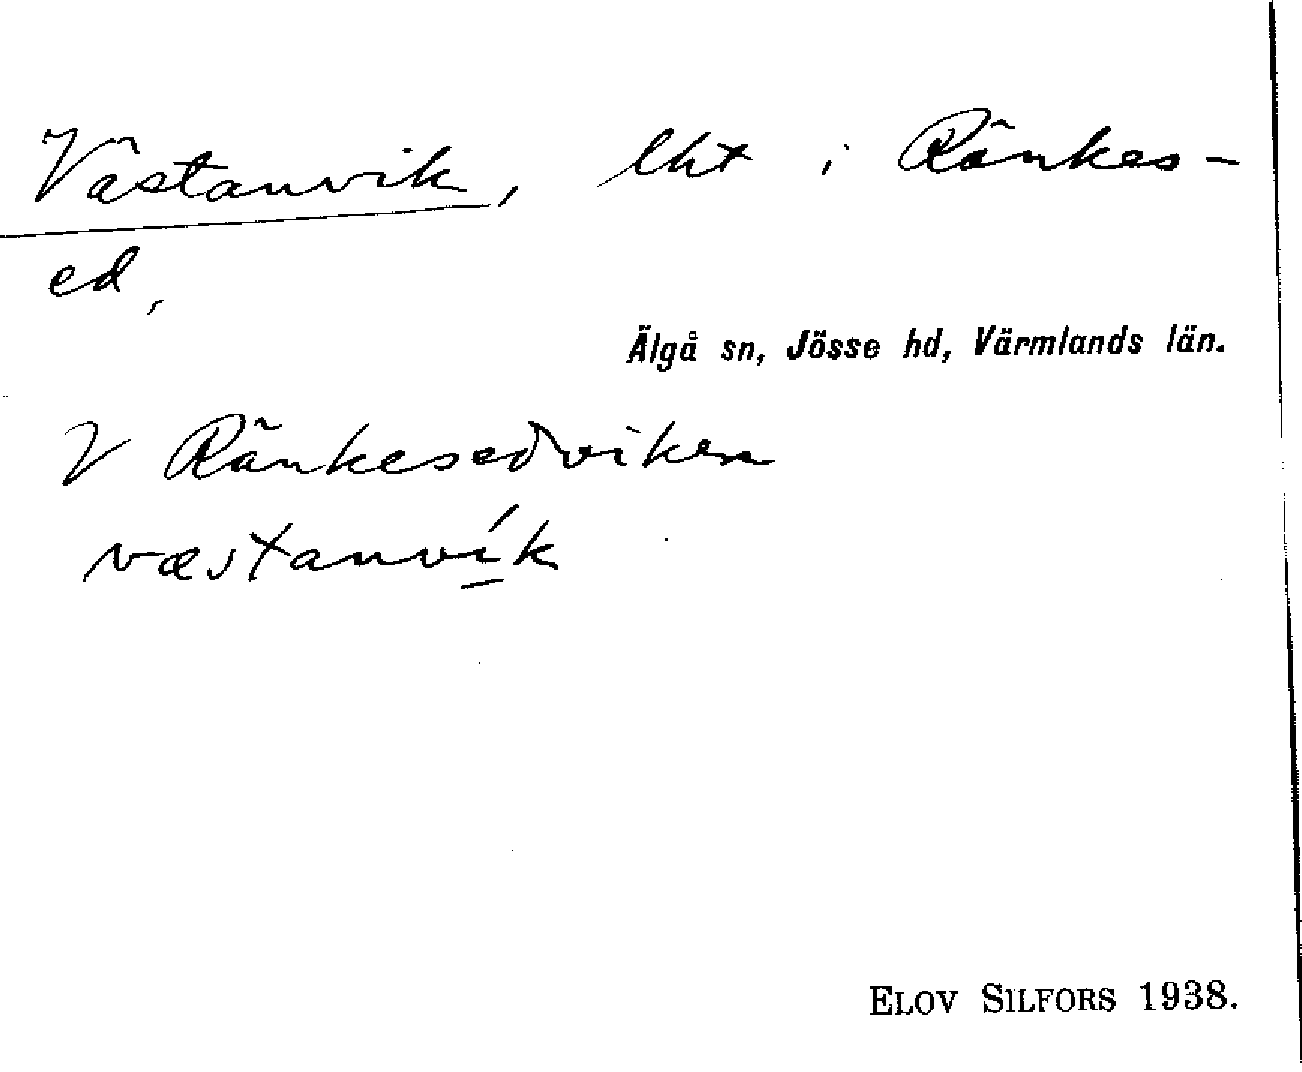 Västanvik, lht i Ränkes-
ed,
Älgå sn, Jösse hd, Värmlands län.
V Ränkesedviken
væstanvík
ELOV SILFORS 1938.